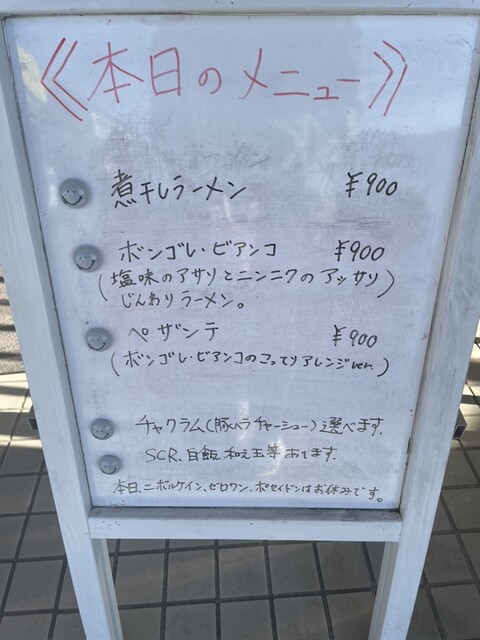 《本日のメニュー》
煮干しラーメン ¥900
ボンゴレ・ビアンコ ¥900
(塩味のアサリとニンニクのアッサリ
じんわりラーメン。)
ペザンテ ¥900
(ボンゴレ・ビアンコのこってりアレンジver.)
チャクラム(豚バラチャーシュー)選べます。
SCR、白飯、和え玉等あります。
本日、ニボルケイン、ゼロワン、ポセイドンはお休みです。